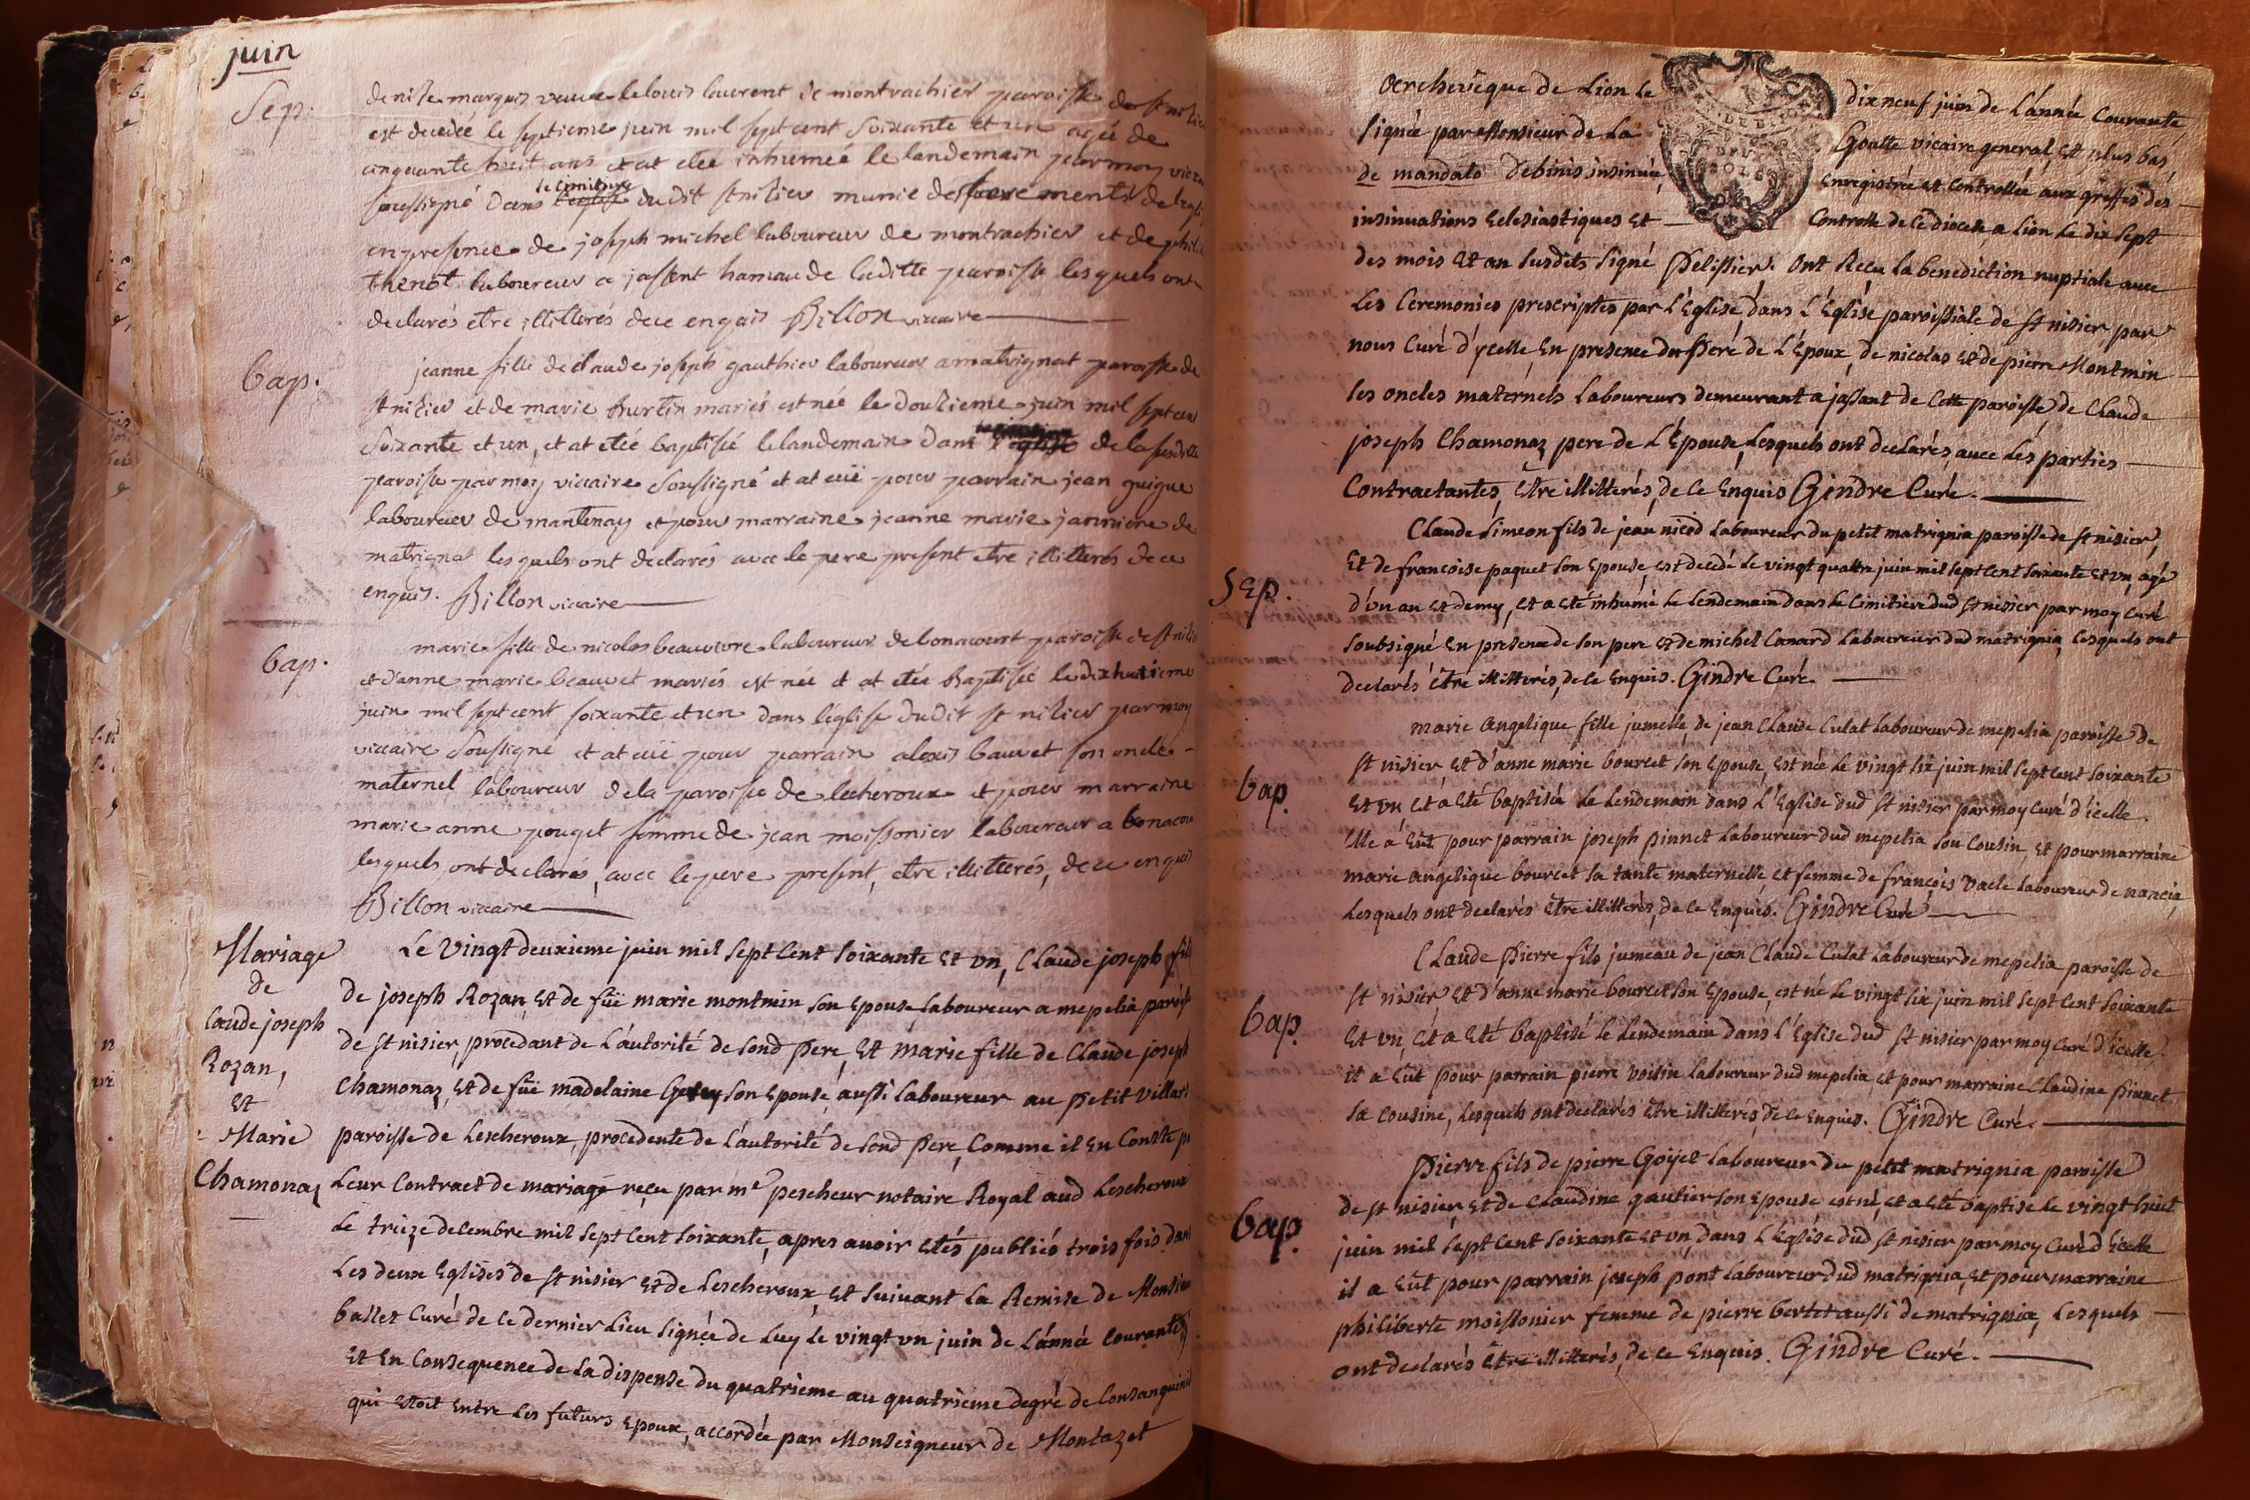 juin
Sep.
denise marquis veuve de louis laurent de montrachier paroisse de st nisier
est decedée le septieme juin mil sept cent soixante et un agée de
cinquante huit ans et at etée inhumeé le landemain par moy vicaire
soussigné dans le cimitiere dudit st nisier munie des sacrements de
en presence de joseph michel laboureur de montrachier et de
thenot laboureur a jassent hamau de laditte paroisse lesquels ont
declarés etre illitterés de ce enquis Billon viccaire
bap.
jeanne fille de claude joseph gauthier laboureur a matrignat paroisse de
st nisier et de marie Burtin mariés est née le douzieme juin mil sept cent
soixante et un, et at etée baptisée le landemain dans l'eglise de la susditte
paroisse par moy viccaire soussigné et at eüe pour parrain jean guigue
laboureur de mantenay et pour marraine jeanne marie janniere de
matrignat lesquels ont declarés avec le pere present etre illitterés de ce
enquis. Billon viccaire
bap.
marie fille de nicolas beauvivre laboureur de bonacourt paroisse de st nisier
et d'anne marie beauvet mariés est née et at etée Baptisée le dixhuitieme
juin mil sept cent soixante et un dans l'eglise dudit st nisier par moy
viccaire soussigné et at eüe pour parrain alexis bauvet son oncle
maternel laboureur de la paroisse de lecheroux et pour marraine
marie anne pouget femme de jean moissonier laboureur a bonacour
lesquels ont declarés, avec le pere present, etre illitterés, de ce enquis
Billon viccaire
Mariage
de
Claude joseph
Rozan,
Et
Marie
Chamonaz
Le vingt deuxieme juin mil sept Cent soixante Et vn, Claude joseph fils
de joseph Rozan, Et de füe marie montmin son Epouse laboureur a mepelia paroisse
de st nisier, procedant de L'autorité de sond Pere, Et Marie fille de Claude joseph
Chamonaz, Et de füe madelaine son Epouse, aussi laboureur au Petit villars
paroisse de Lescheroux, procedente de L'autorité de sond Pere, Comme il En Conste par
Leur Contract de mariage reçu par me pescheur notaire Royal aud Lescheroux
Le treize decembre mil sept Cent soixante, apres auoir Etés publiés trois fois dans
Les deux Eglises de st nisier et de Lescheroux, Et suiuant La Remise de Monsieur
ballet Curé de Ce dernier Lieu signée de Luy Le vingt vn juin de L'année Courante
Et En Consequence de La dispense du quatrieme au quatrieme degré de Consanguinité
qui Etoit Entre Les futurs Epoux, accordée par Monseigneur de Montazet
archevêque de Lion Le dix neuf juin de L'année Courante
signée par Monsieur de La Goutte vicaire general, Et plus bas
de mandato Debinis insinuée, Enregistrée Et Controllée aux greffes des
insinuations Eclesiastiques Et Controlle de Ce diocese a Lion Le dix sept
des mois Et an susdits signé Pelissier. Ont Recu la benediction nuptiale auec
Les Ceremonies prescriptes par L'Eglise, dans L'Eglise paroissiale de st nisier par
nous Curé d'ycelle, En presence du Peré de L'Epoux, de nicolas et de pierre Montmin
ses oncles maternels Laboureurs demeurant a jassant de Cette paroisse, de Claude
joseph Chamonaz pere de L'Épouse, Lesquels ont declarés, auec Les parties
Contractantes, Être illitterés, de Ce Enquis Gindre Curé.
Sep.
Claude simeon fils de jean nicod Laboureur du petit matrignia paroisse de st nisier,
Et de francoise paquet son Epouse, est decedé Le vingt quatre juin mil sept Cent soixante et vn, agé
d'vn an et demy, et a eté inhumé Le Lendemain dans Le Cimitiere dud st nisier par moy Curé
soubsigné En presence de son pere et de michel Canard Laboureur dud matrignia, Lesquels ont
declarés être illitterés, de Ce Enquis. Gindre Curé.
bap.
marie angelique fille jumelle de jean Claude Culat laboureur de mepelia paroisse de
st nisier, Et d'anne marie bourcet son Epouse, Est née Le vingt six juin mil sept cent soixante
Et vn, et a été baptisée Le Lendemain dans L'Eglise dud st nisier par moy Curé d'icelle.
Elle a Eût pour parrain joseph Pinnet Laboureur dud mepelia son Cousin, et pour marraine
marie angelique bourcet sa tante maternelle et femme de françois vacle Laboureur de nancia,
Lesquels ont declarés Être illitterés, de Ce Enquis. Gindre Curé
bap.
Claude Pierre fils jumeau de jean Claude Culat Laboureur de mepelia paroisse de
st nisier Et d'anne marie bourcet son Epouse, est né Le vingt six juin mil sept Cent soixante
Et vn, Et a eté baptisé Le Lendemain dans L'Eglise dud st nisier par moy Curé d'icelle.
il a Eût pour parrain pierre voisin Laboureur dud mepelia, et pour marraine Claudine Pinnet
sa cousine, Lesquels ont declarés Être illitterés, de Ce Enquis. Gindre Curé.
bap.
Pierre fils de pierre Goyet Laboureur du petit matrignia paroisse
de st nisier, Et de Claudine gautier son Epouse est né, et a eté baptisé Le vingt huit
juin mil sept Cent soixante et vn, dans L'Eglise dud st nisier par moy Curé d'icelle
il a Eût pour parrain joseph pont Laboureur dud matrignia, Et pour marraine
philiberte moissonier femme de pierre bertet aussi de matrignia, Lesquels
ont declarés Être illitterés, de Ce Enquis. Gindre Curé.